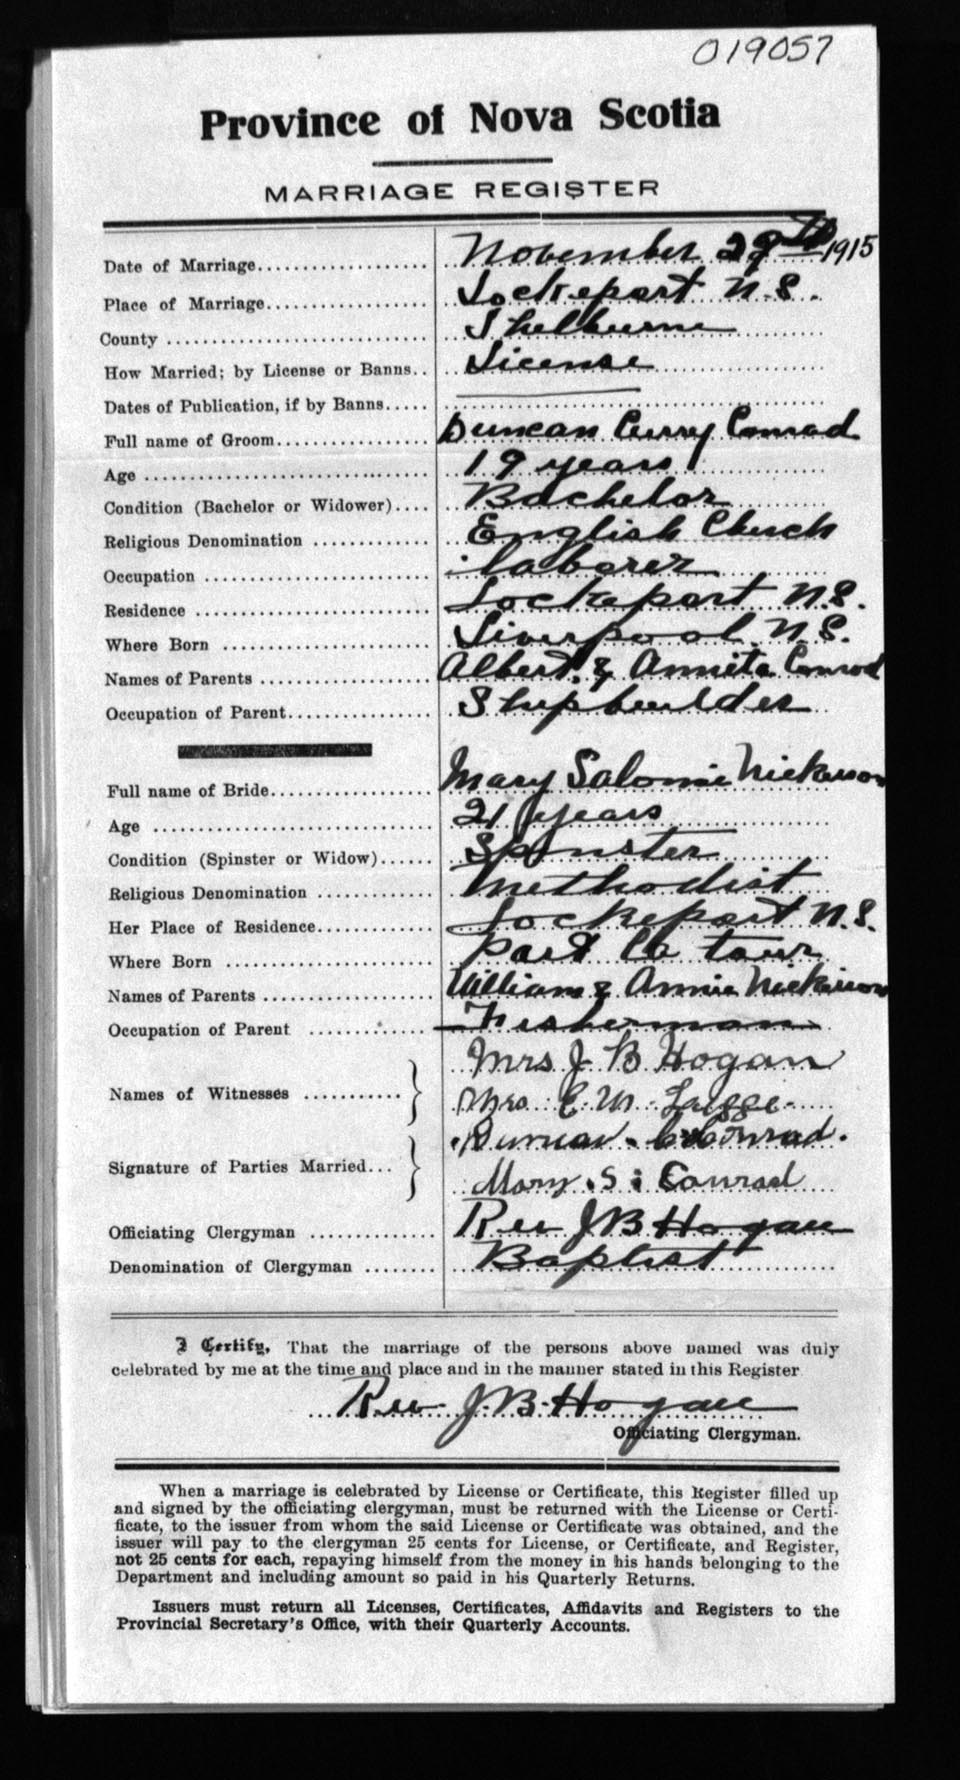 019057
Province of Nova Scotia
MARRIAGE REGISTER
Date of Marriage.................... November 29th 1915
Place of Marriage................... Lockeport N.S.
County ............................. Shelburne
How Married; by License or Banns.. License
Dates of Publication, if by Banns.....
Full name of Groom.................. Duncan Curry Conrad
Age ................................ 19 years
Condition (Bachelor or Widower).... Bachelor
Religious Denomination ............. English Church
Occupation ......................... laborer
Residence .......................... Lockeport N.S.
Where Born ......................... Liverpool N.S.
Names of Parents ................... Albert & Annita Conrod
Occupation of Parent................ Shipbuilder
Full name of Bride.................. Mary Salomie Nickerson
Age ................................ 21 years
Condition (Spinster or Widow)...... Spinster
Religious Denomination ............. Methodist
Her Place of Residence.............. Lockeport N.S.
Where Born ......................... Port La tour
Names of Parents ................... William & Annie Nickerson
Occupation of Parent ............... Fisherman
Mrs J B Hogan
Names of Witnesses ...........
Mrs E. M.
Duncan. C. Conrad.
Signature of Parties Married...
Mary. S. Conrad
Officiating Clergyman .............. Rev J B Hogan
Denomination of Clergyman ........ Baptist
I Certify, That the marriage of the persons above named was duly
celebrated by me at the time and place and in the manner stated in this Register
Rev. J. B. Hogan
Officiating Clergyman.
When a marriage is celebrated by License or Certificate, this Register filled up
and signed by the officiating clergyman, must be returned with the License or Certi-
ficate, to the issuer from whom the said License or Certificate was obtained, and the
issuer will pay to the clergyman 25 cents for License, or Certificate, and Register,
not 25 cents for each, repaying himself from the money in his hands belonging to the
Department and including amount so paid in his Quarterly Returns.
Issuers must return all Licenses, Certificates, Affidavits and Registers to the
Provincial Secretary's Office, with their Quarterly Accounts.